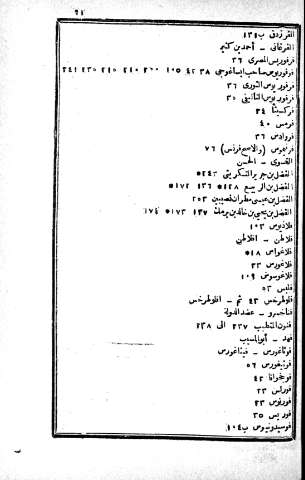 ٢١
الفرزدق ب١٣٩
الفرغانى - أحمد بن كثير
فرفوريس المصرى ٣٦
فرفوريوس صاحب ايساغوجى ٣٨ ٤٢ ١٠٥ ٢٠٠ ٢١٠ ٢١٥ ٢٣٥ ٢٤١
فرفوريوس الثورى ٣٦
فرفوريوس التالينى ٣٥
فركسيثا ٣٤
فرمس ٤٠
فروادس ٣٦
فرنيموس (والاصح فرنس) ٧٦
الفسوى - الحسن
الفضل بن جرير التكريتى ٢٤٣*
الفضل بن الربيع ١٢٨* ١٣٦ ١٧٢*
الفضل بن عيسى مطران نصيبين ٢٥٣
الفضل بن يحيى بن خالد بن برمك ١٣٧ ١٧٣* ١٧٤
فلاذيوس ١٠٣
فلاطن - افلاطن
فلاغواس ١٨*
فلاغورس ٣٣
فلاغوسوس ١٠٩
فليس ٥٣
فلوطرخس ٤٣ ثم - افلوطرخس
فناخسرو - عضد الدولة
فنون التطبب ٢٣٧ الى ٢٣٨
فهد - أبو المسيب
فوثاغورس - فيثاغورس
فوثيغورس ٥٦
فوجخوانا ٤٢
فورلس ٢٣
فورنوس ٢٣
فوريس ٣٥
فوسيدونيوس ب١٠٤